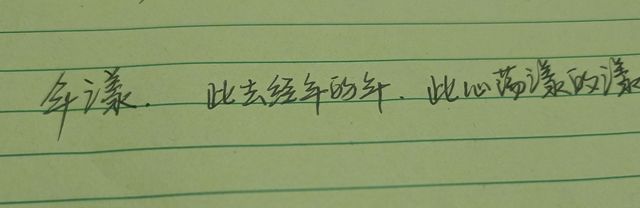 年漾. 此去经年的年. 此心荡漾的漾